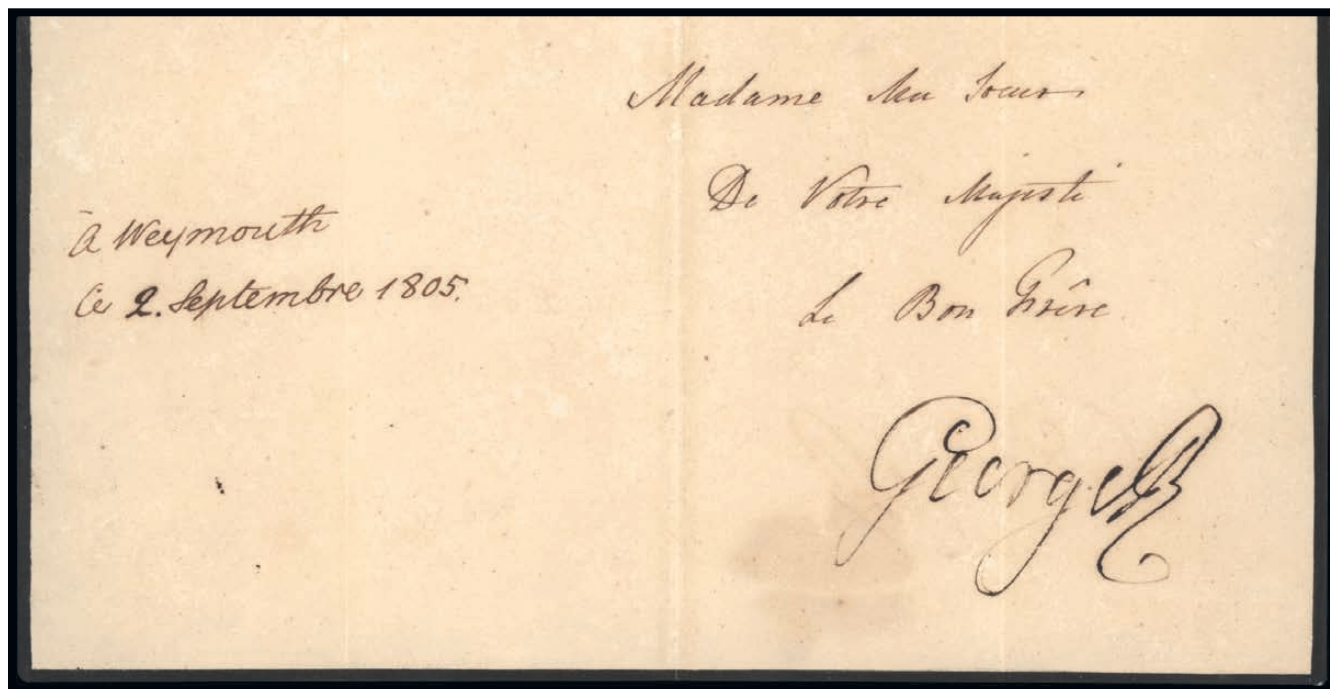 Madame Ma Soeur
De Votre Majesté
Le Bon Frêre
à Weymouth
ce 2. Septembre 1805.
George R